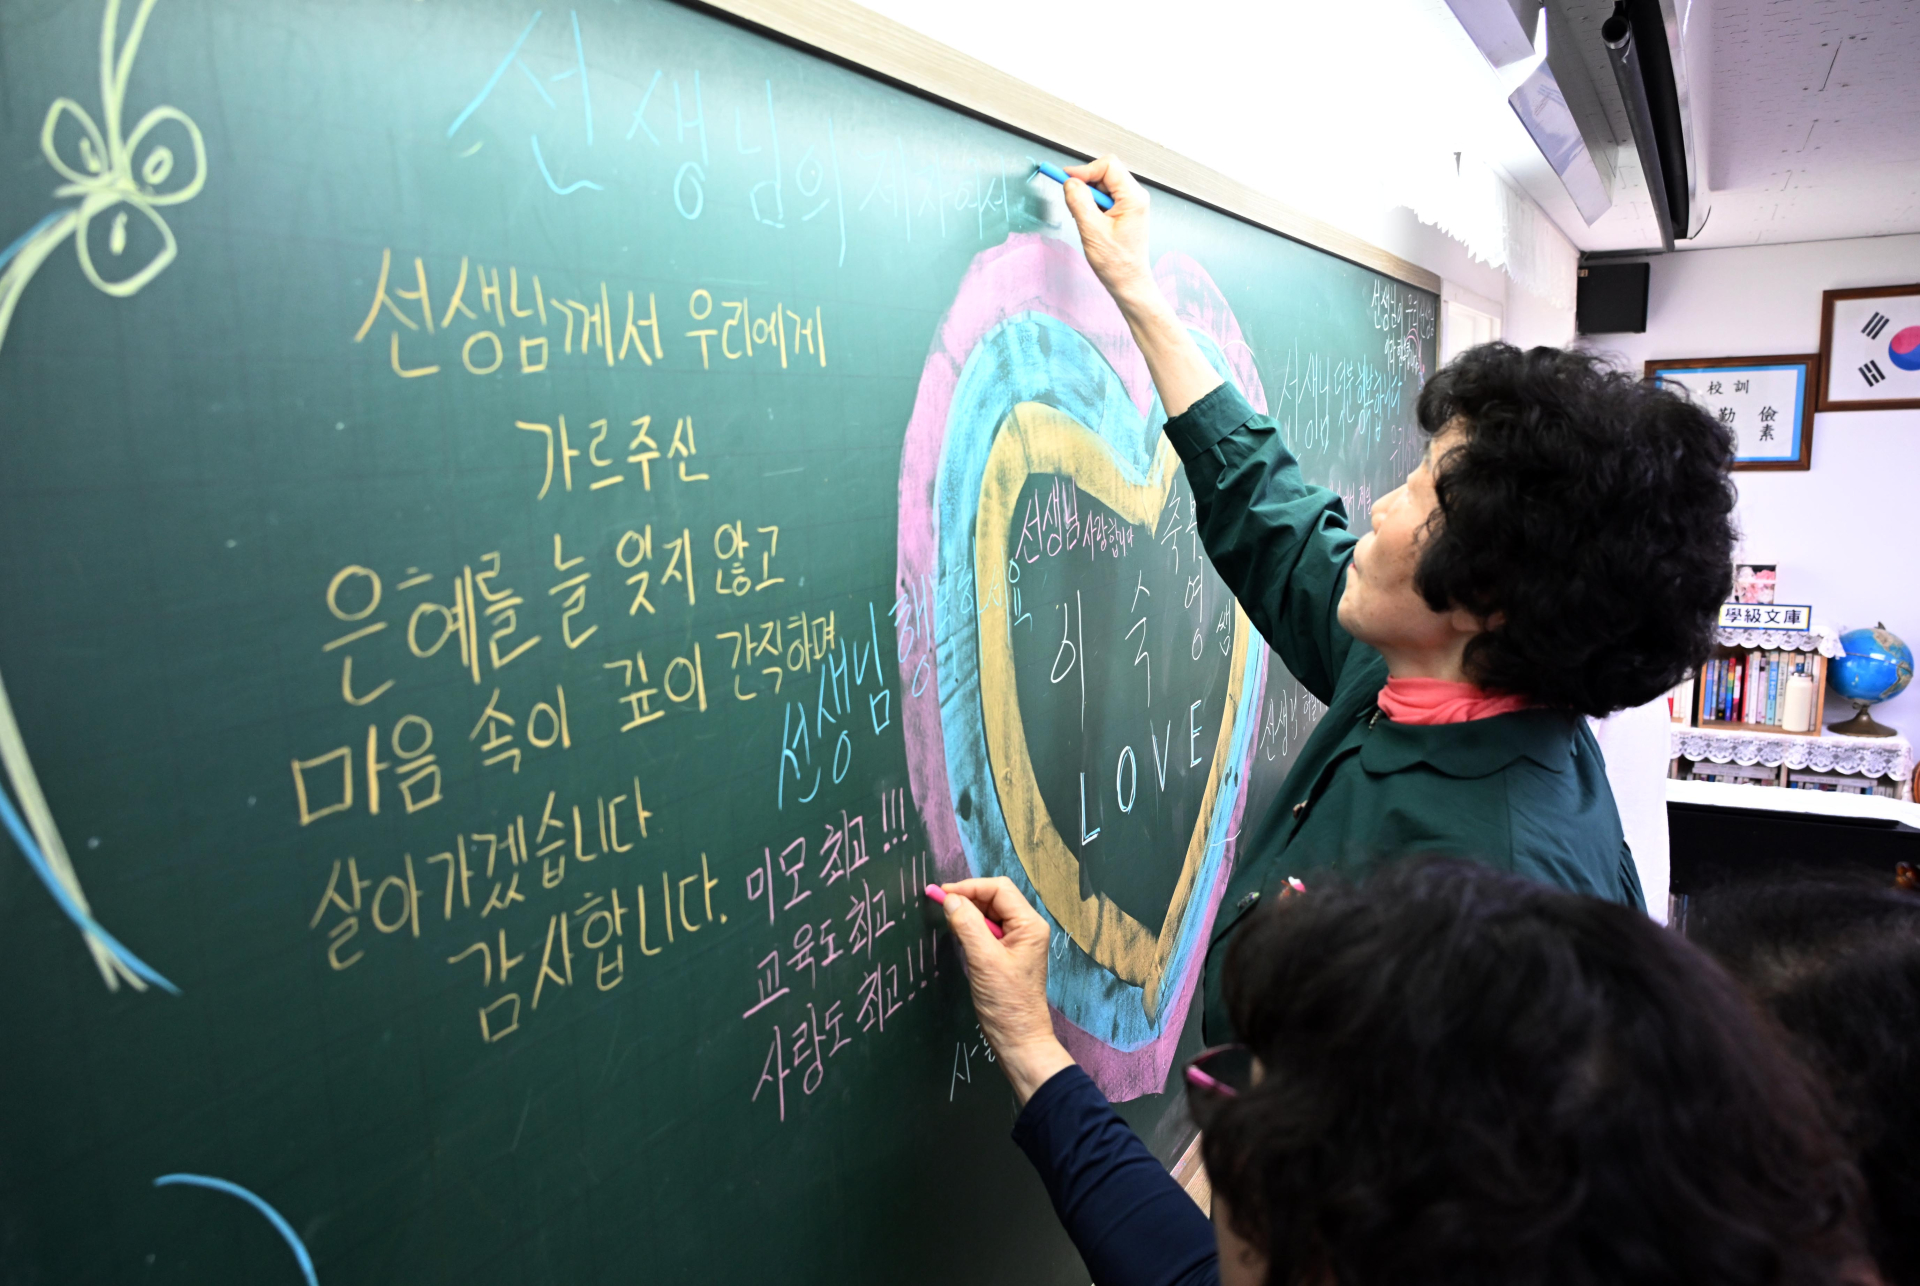 선생님의 제자여서
선생님께서 우리에게
가르주신
은혜를 늘 잊지 않고
마음 속이 깊이 간직하며
살아가겠습니다
감사합니다.
선생님 행복하세요
미모 최고 !!!
교육도 최고 !!!
사랑도 최고 !!!
선생님 사랑합니다
축복
이숙영 쌤
LOVE
선생님
校訓
勤儉
素
學級文庫